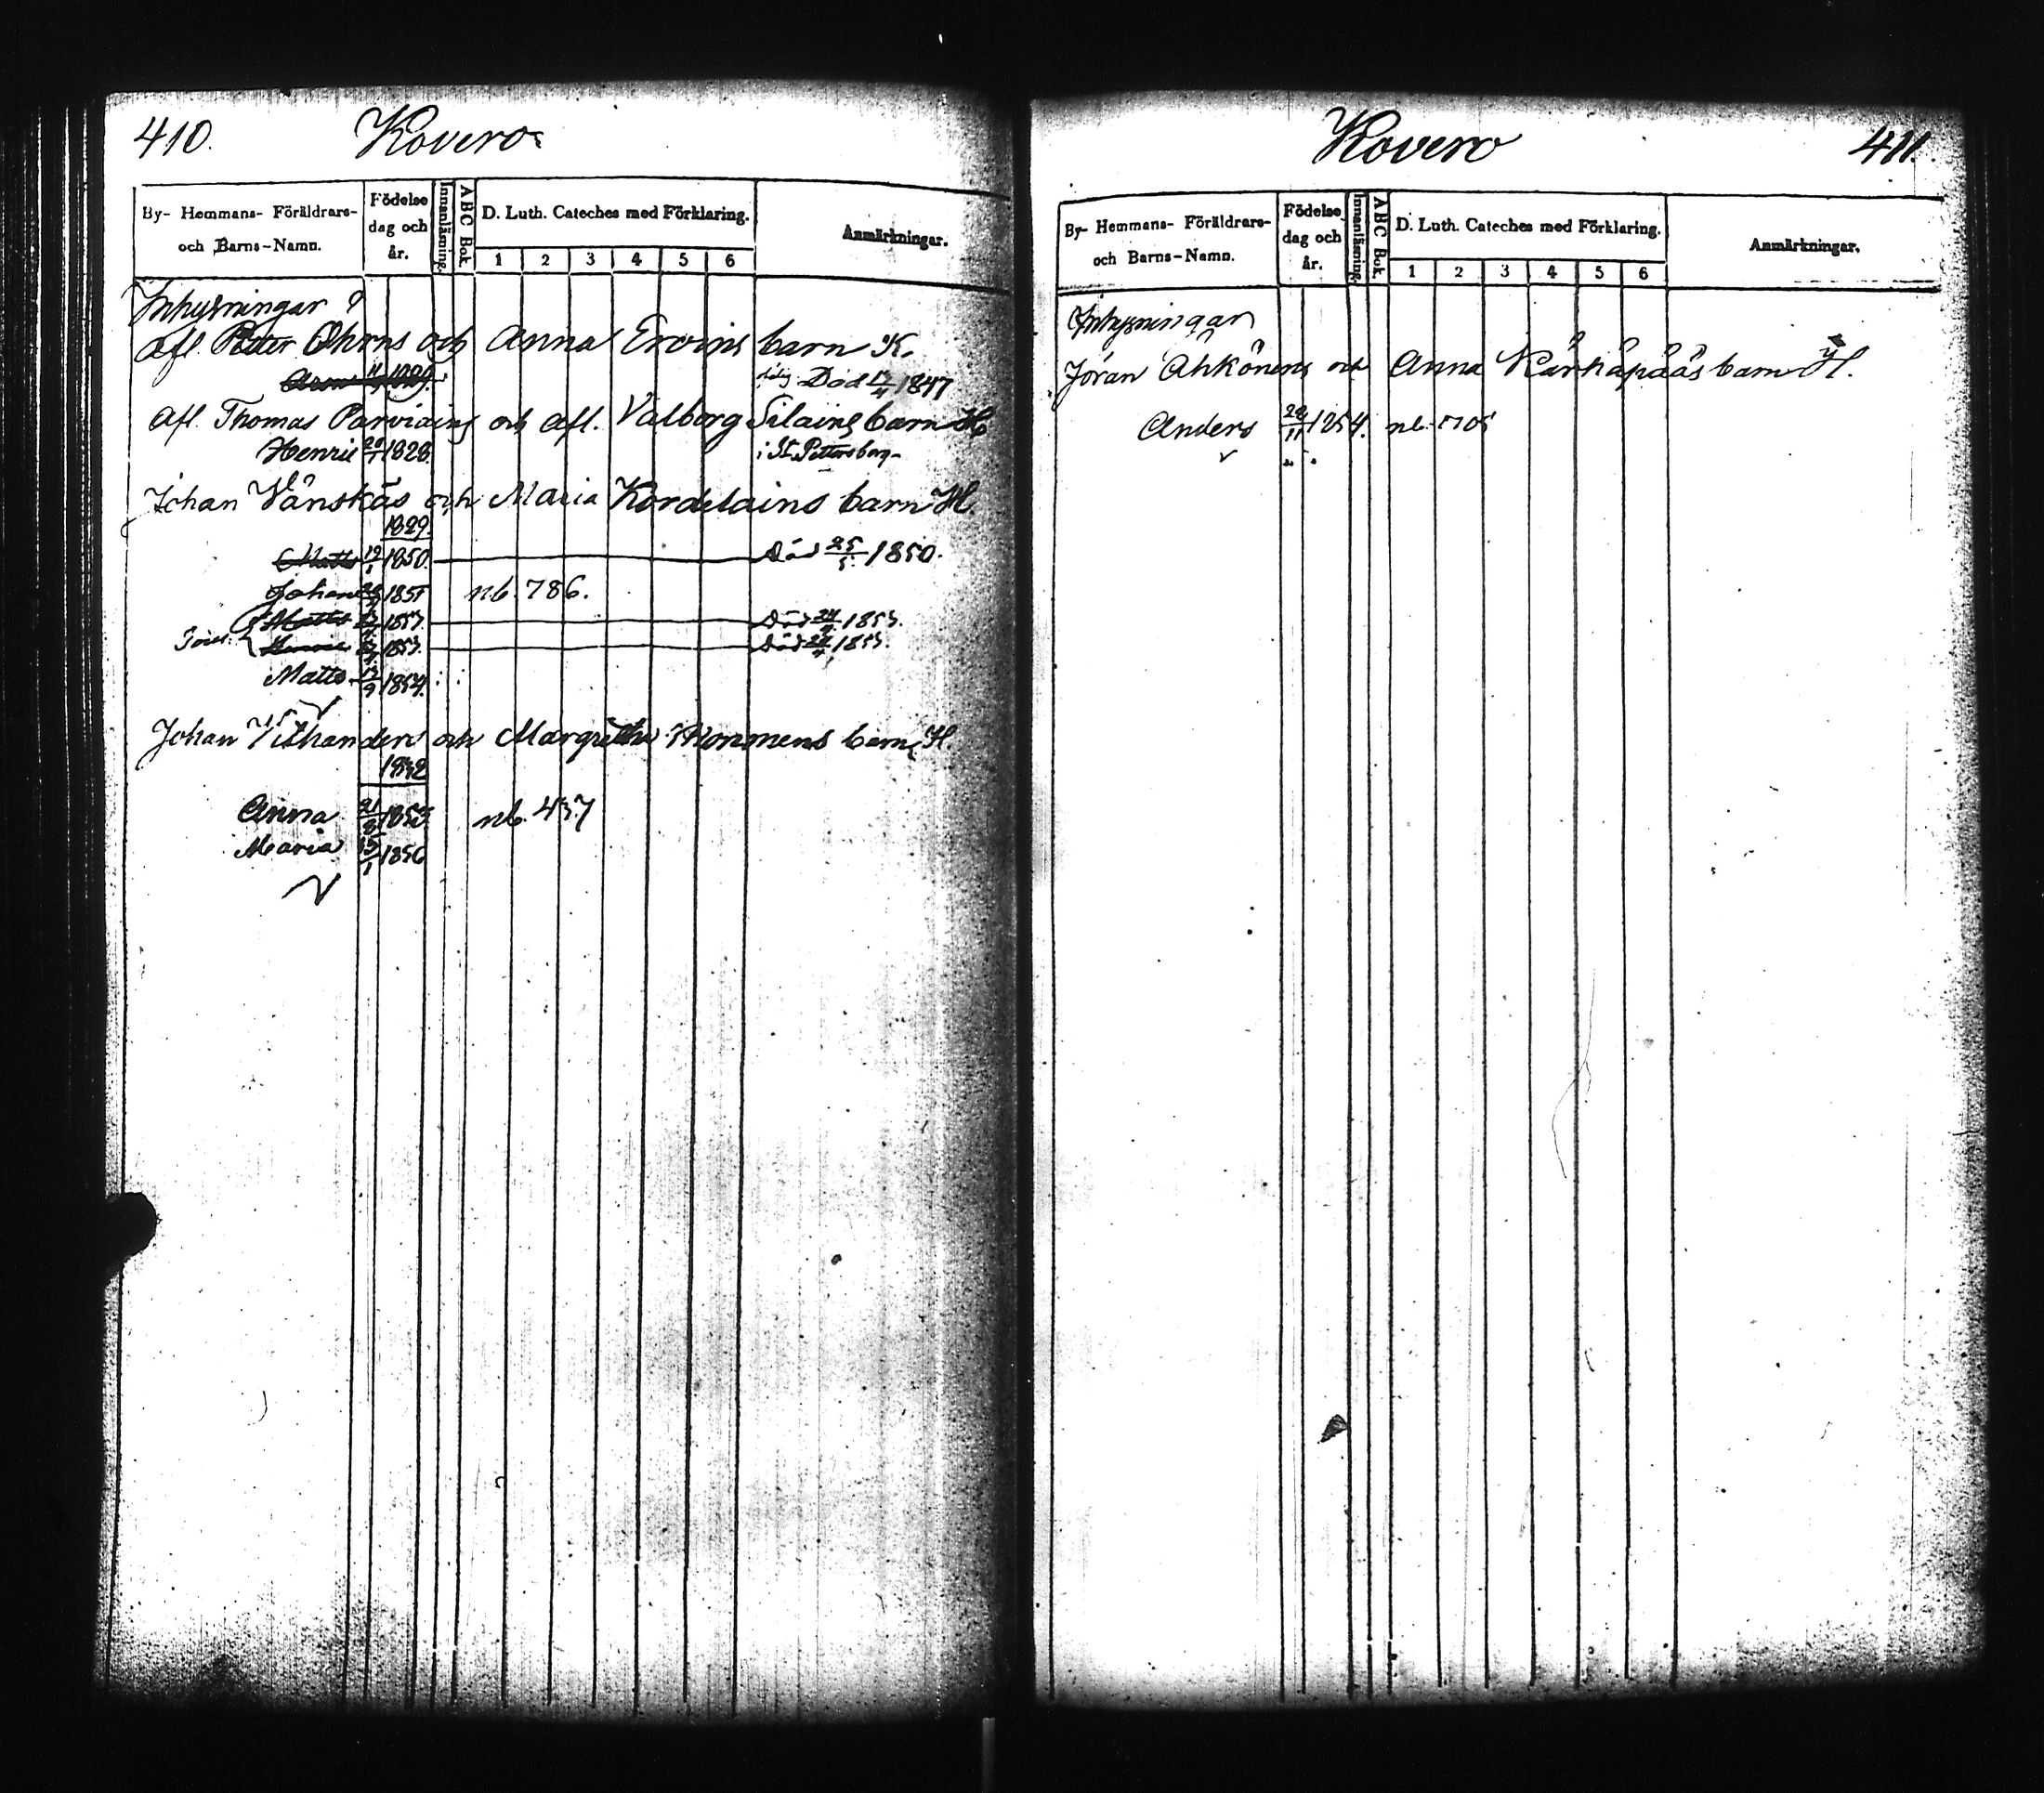 410. Kovero
By- Hemmans- Föräldrars- och Barns-Namn.
Födelse dag och år.
Innanläsning.
ABC Bok.
D. Luth. Cateches med Förklaring.
1 2 3 4 5 6
Anmärkningar.
Inhysningar
Afl. Petter Ohrns och Anna Ervins barn K.
1829. Död 12/4 1847
Afl. Thomas Parviains och Afl. Valborg Silains barn H
Henric 1828. i St. Petersburg
Johan Vänskäs och Maria Kordelains barn H.
1829.
Matts 1850. Död 25/5 1850.
Johan 1851 nb. 786.
Matts 1853. Död 1853.
1853. Död 1853.
Matts 1854.
Johan Vithanders och Margretha barn H
Anna 21/8 nb. 437
Maria 1856
Kovero 411.
By- Hemmans- Föräldrars- och Barns-Namn.
Födelse dag och år.
Innanläsning.
ABC Bok.
D. Luth. Cateches med Förklaring.
1 2 3 4 5 6
Anmärkningar.
Inhysningar
Jöran Ahkönens och Anna Kärhäpääs barn H.
Anders 1854. nb. 705